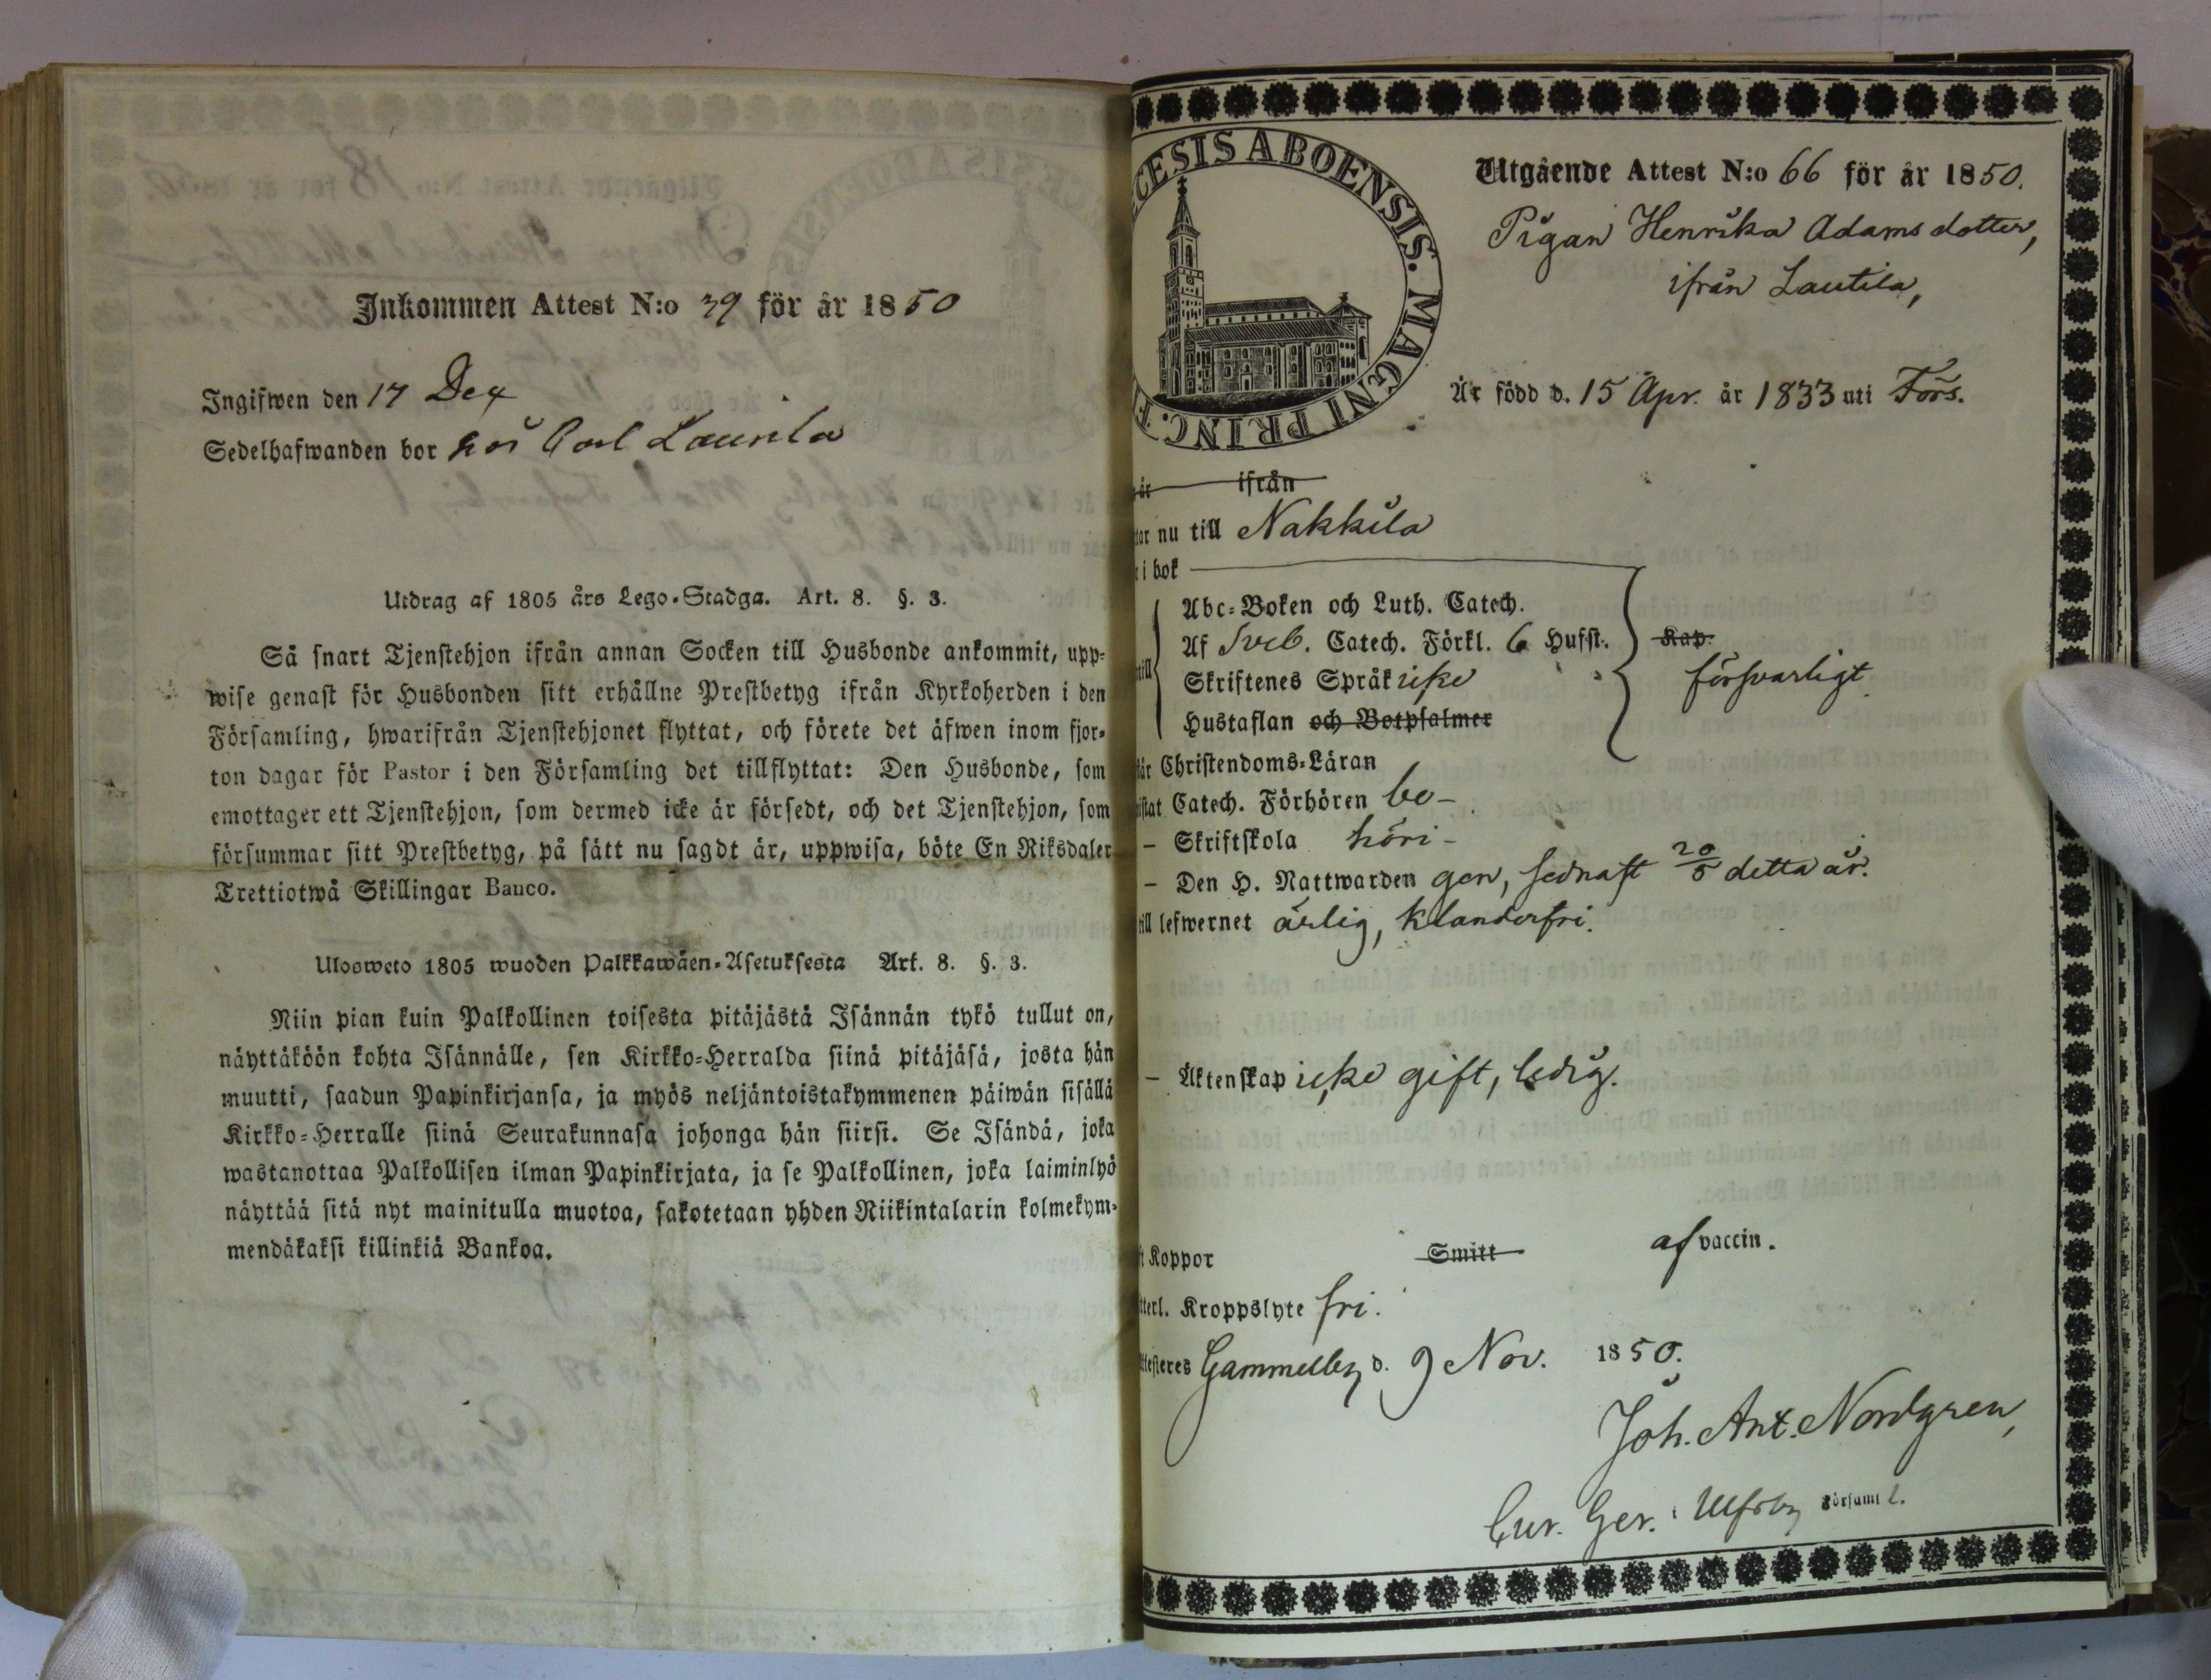 Inkommen Attest N:o 39 för år 1850
Ingifwen den 17 Dec
Sedelhafwanden bor hos Carl Laurila
Utdrag af 1805 års Lego-Stadga. Art. 8. §. 3.
Så snart Tjenstehjon ifrån annan Socken till Husbonde ankommit, upp-
wise genast för Husbonden sitt erhållne Prestbetyg ifrån Kyrkoherden i den
Församling, hwarifrån Tjenstehjonet flyttat, och förete det äfwen inom fjor-
ton dagar för Pastor i den Församling det tillflyttat: Den Husbonde, som
emottager ett Tjenstehjon, som dermed icke är försedt, och det Tjenstehjon, som
försummar sitt Prestbetyg, på sätt nu sagdt är, uppwisa, böte En Riksdaler
Trettiotwå Skillingar Banco.
Ulosweto 1805 wuoden Palkkawäen-Asetuksesta Art. 8. §. 3.
Niin pian kuin Palkollinen toisesta pitäjästä Isännän tykö tullut on,
näyttäköön kohta Isännälle, sen Kirkko-Herralda siinä pitäjäsä, josta hän
muutti, saadun Papinkirjansa, ja myös neljäntoistakymmenen päiwän sisällä
Kirkko-Herralle siinä Seurakunnasa johonga hän siirsi. Se Isändä, joka
wastanottaa Palkollisen ilman Papinkirjata, ja se Palkollinen, joka laiminlyö
näyttää sitä nyt mainitulla muotoa, sakotetaan yhden Riikintalarin kolmekym-
mendäkaksi killinkiä Bankoa.
ECESIS ABOENSIS. MAGNI PRINC. F
Utgående Attest N:o 66 för år 1850.
Pigan Henrika Adams dotter,
ifrån Lautila,
Är född d. 15 Apr. år 1833 uti Förs.
år ifrån
tar nu till Nakkila
i bok
Abc-Boken och Luth. Catech.
Af Sveb. Catech. Förkl. 6 Hufst. Kap.
till Skriftenes Språk icke försvarligt
Hustaflan och Botpsalmer
tår Christendoms-Läran
istat Catech. Förhören be-
– Skriftskola höri-
– Den H. Nattwarden gen, sednast 20/5 detta år.
till lefwernet ärlig, klanderfri.
– Äktenskap icke gift, ledig.
t Koppor Smitt af vaccin.
tterl. Kroppslyte fri.
ttesteres Gammelby d. 9 Nov. 1850.
Joh. Ant. Nordgren,
Cur. Ger. i Ulfsby Församl.